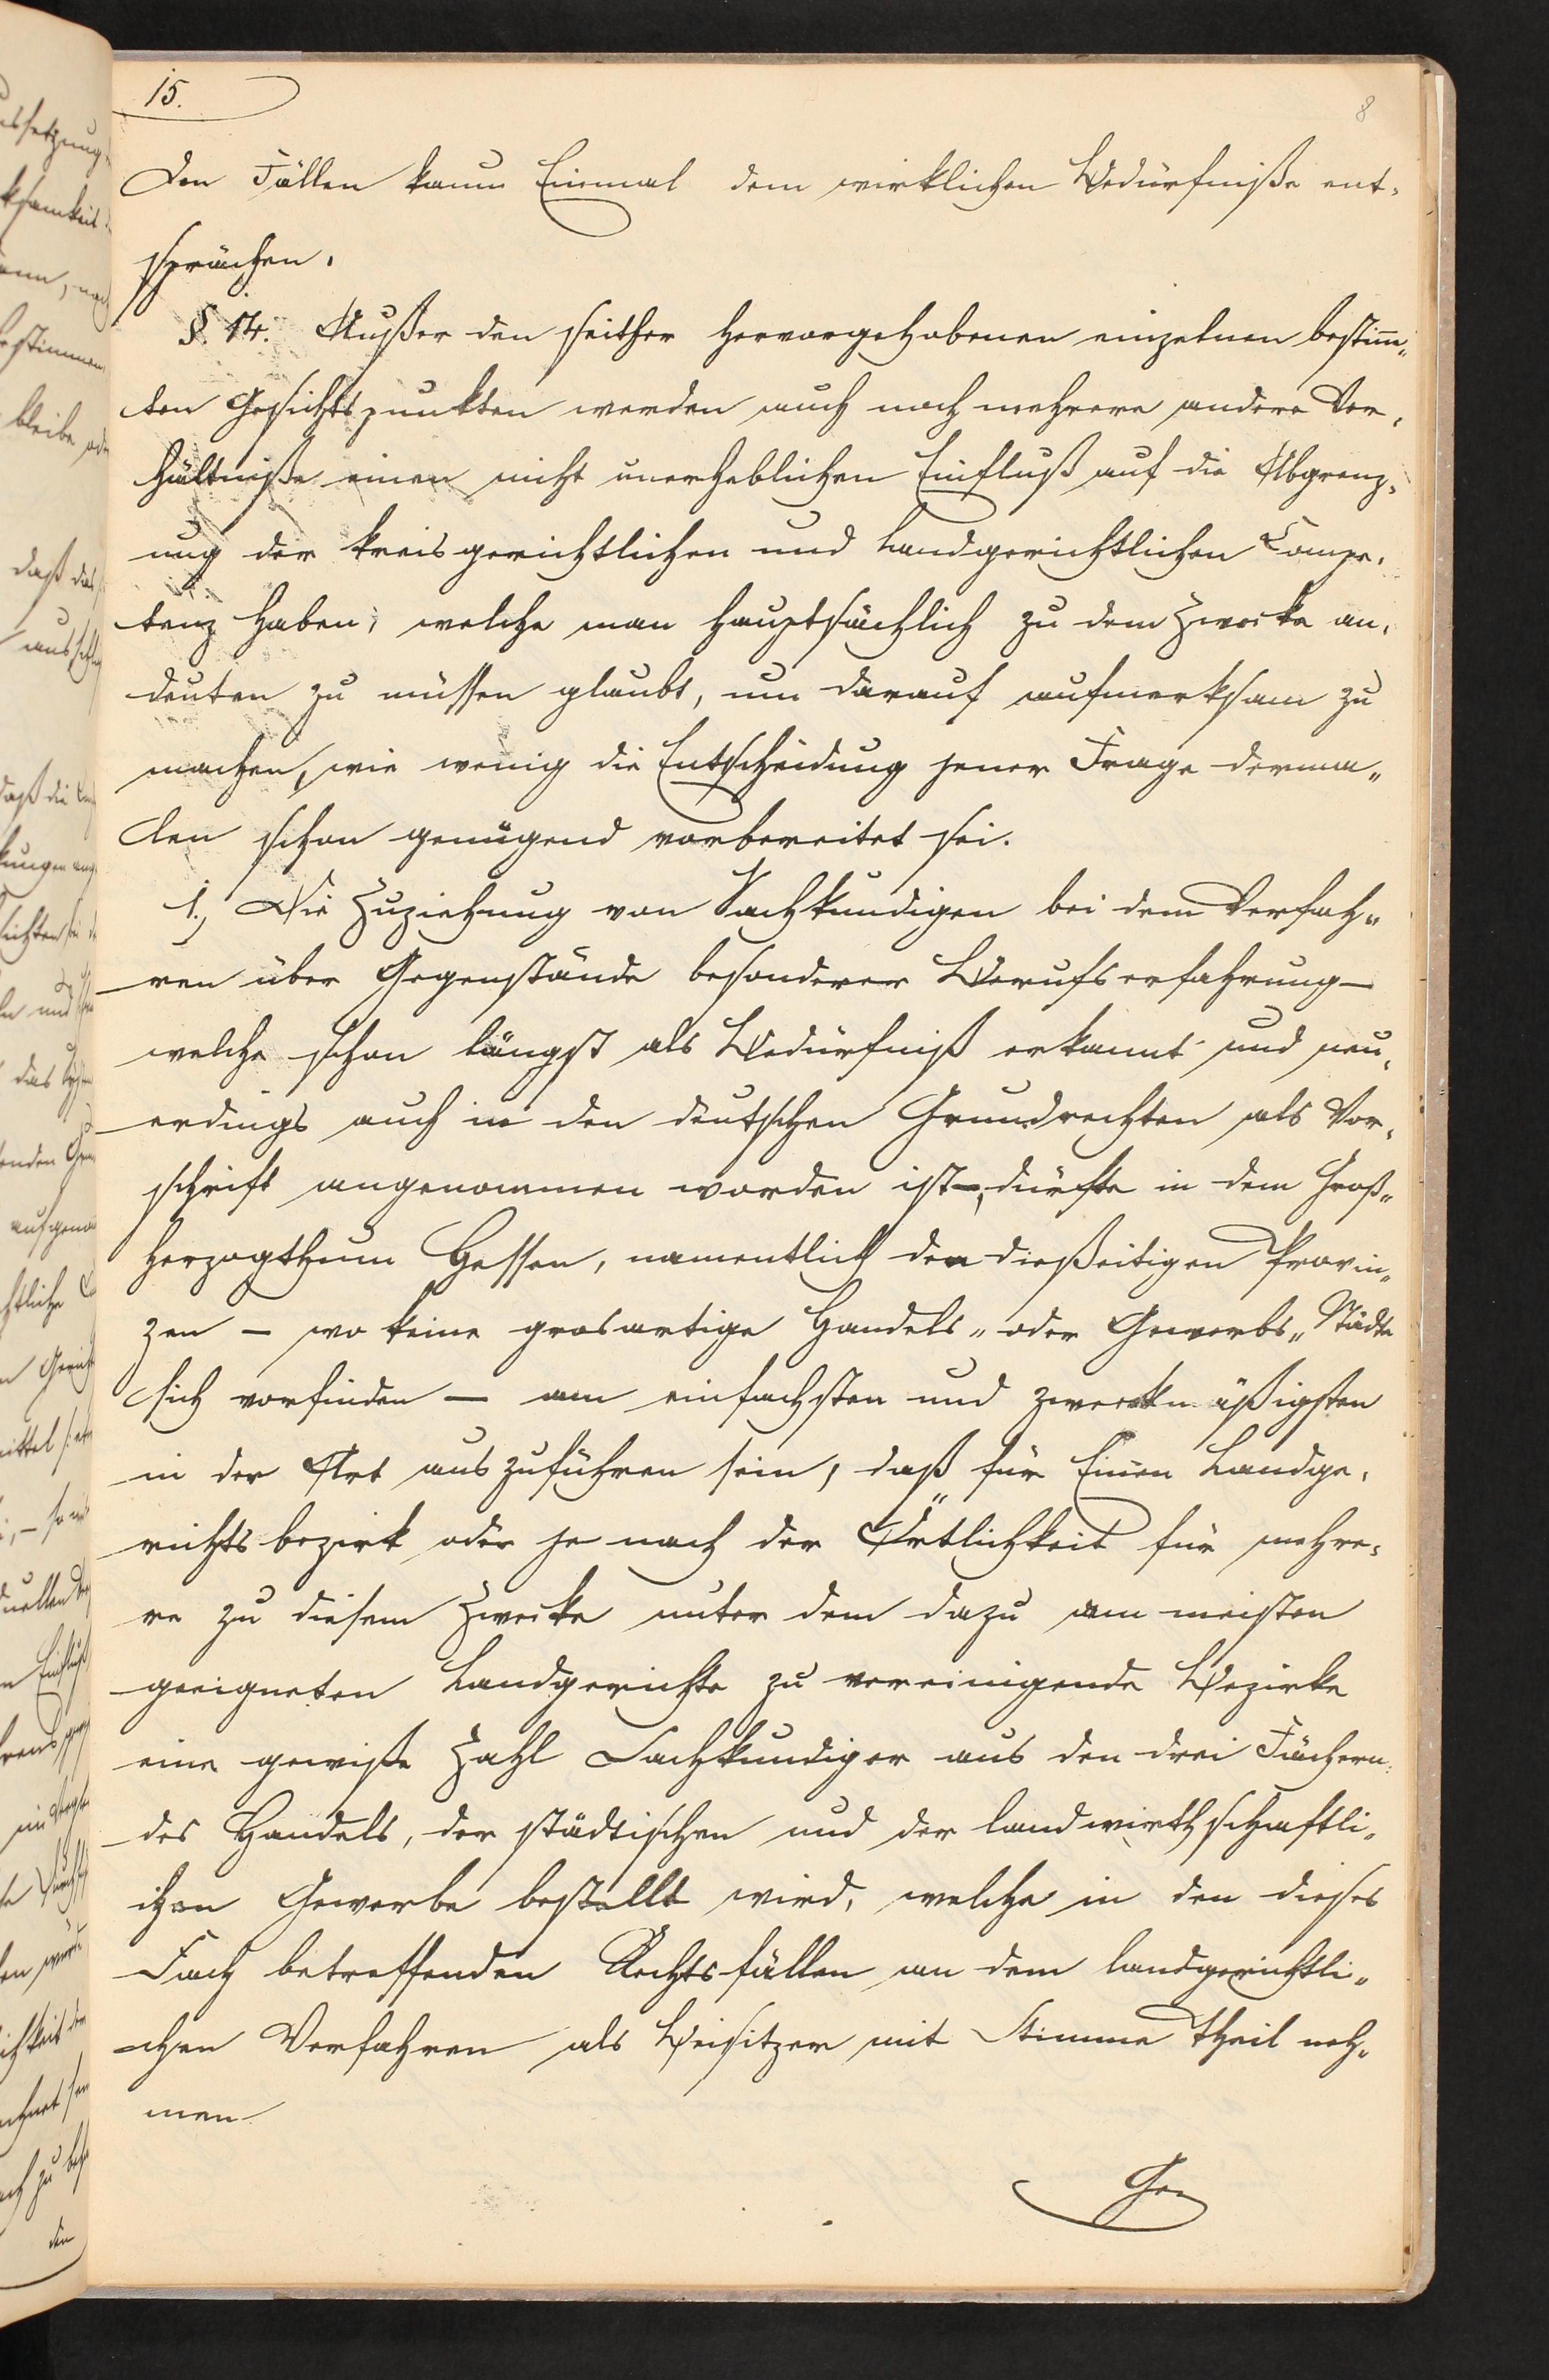 15.
8
den Fällen kaum Einmal dem wirklichen Bedürfniße ent-
sprächen.
§. 14. Außer den seither hervorgehobenen einzelnen bestim̅-
ten Gesichtspunkten werden auch noch mehrere andere Ver-
hältniße einen nicht unerheblichen Einfluß auf die Abgrenz-
ung der kreisgerichtlichen und landgerichtlichen Compe-
tenz haben, welche man hauptsächlich zu dem Zwecke an-
deuten zu müssen glaubt, um darauf aufmerksam zu
machen, wie wenig die Entscheidung jener Frage derma-
len schon genügend vorbereitet sei.
1.) Die Zuziehung von Sachkundigen bei dem Verfah-
ren über Gegenstände besonderer Berufserfahrung –
welche schon längst als Bedürfniß erkannt und neu-
erdings auch in den deutschen Grundrechten als Vor-
schrift angenommen worden ist –, dürfte in dem Groß-
herzogthum Hessen, namentlich den dießeitigen Provin-
zen – wo keine grosartige Handels- oder Gewerbs-Städte
sich vorfinden – am einfachsten und zweckmäßigsten
in der Art auszuführen sein, daß für Einen Landge-
richtsbezirk oder je nach der Örtlichkeit für mehre-
re zu diesem Zwecke unter dem dazu am meisten
geeigneten Landgerichte zu vereinigende Bezirke
eine gewiße Zahl Sachkundiger aus den drei Fächern
des Handels, der städtischen und der landwirthschaftli-
chen Gewerbe bestellt wird, welche in den dieses
Fach betreffenden Rechtsfällen an dem landgerichtli-
chen Verfahren als Beisitzer mit Stimme Theil neh-
men.
Ge-